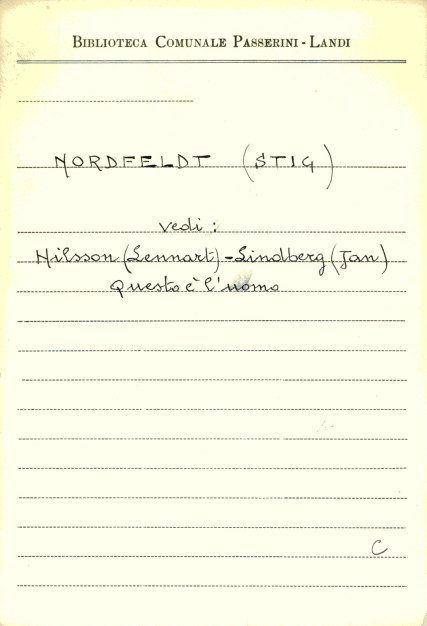 BIBLIOTECA COMUNALE PASSERINI - LANDI
NORDFELDT (STIG)
vedi :
Nilsson (Lennart) - Lindberg (Jan)
Questo è l'uomo
C